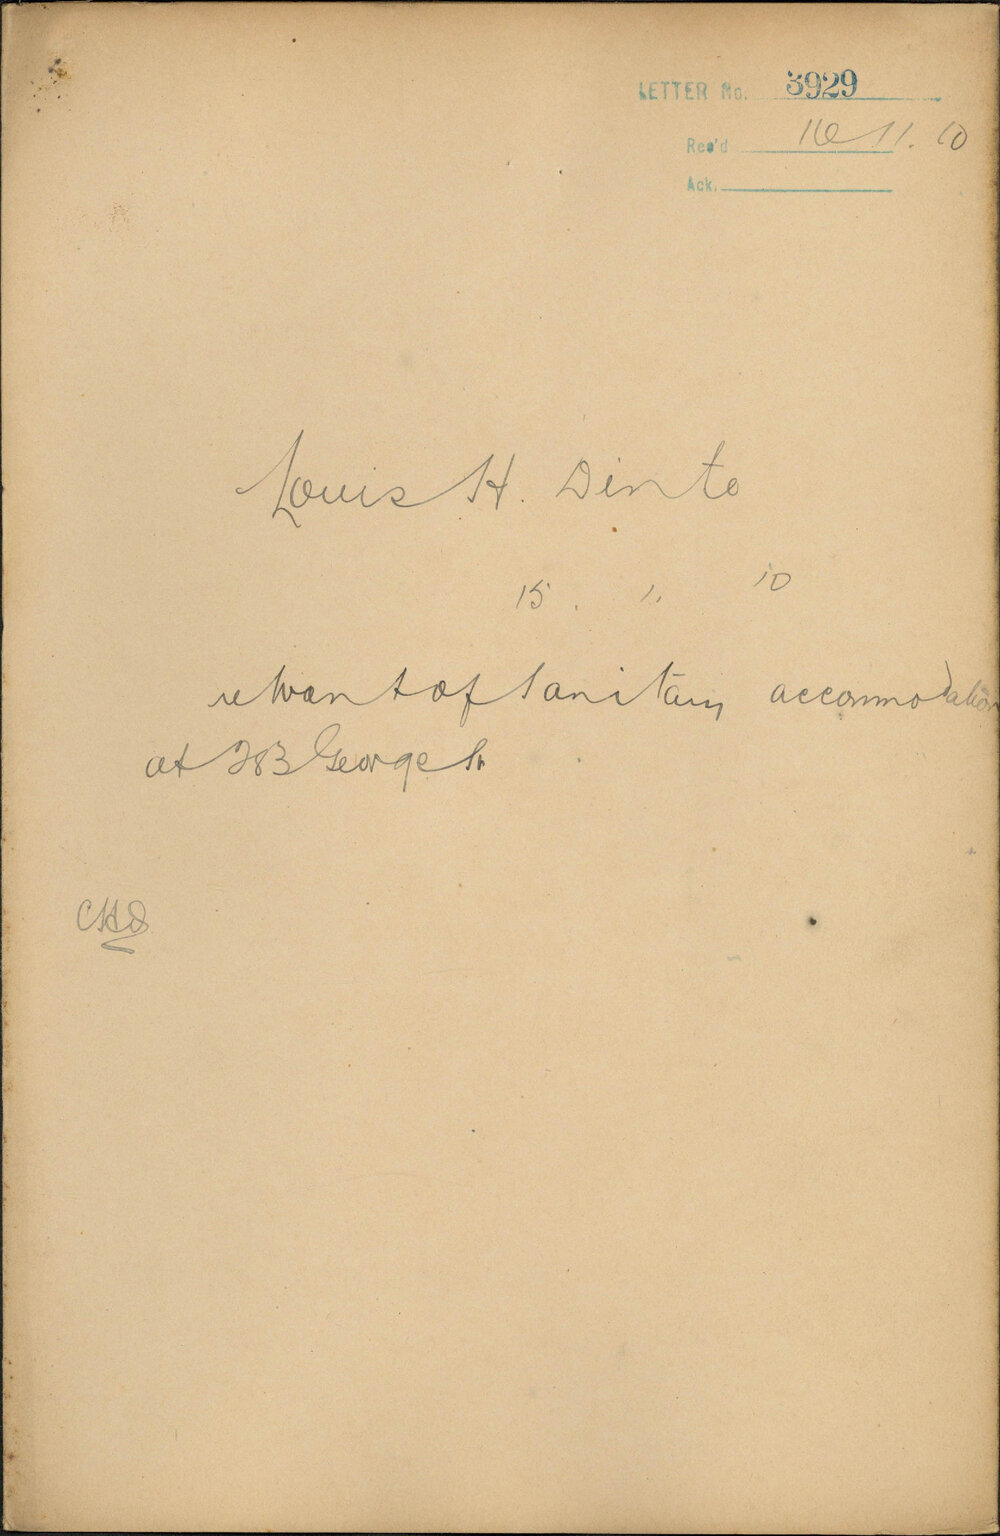 LETTER No. 3929
Rec'd 16 11. 10
Ack.
Louis H. Dinte
15. 11 10
re want of Sanitary accommodation
at 283 George St
CHO